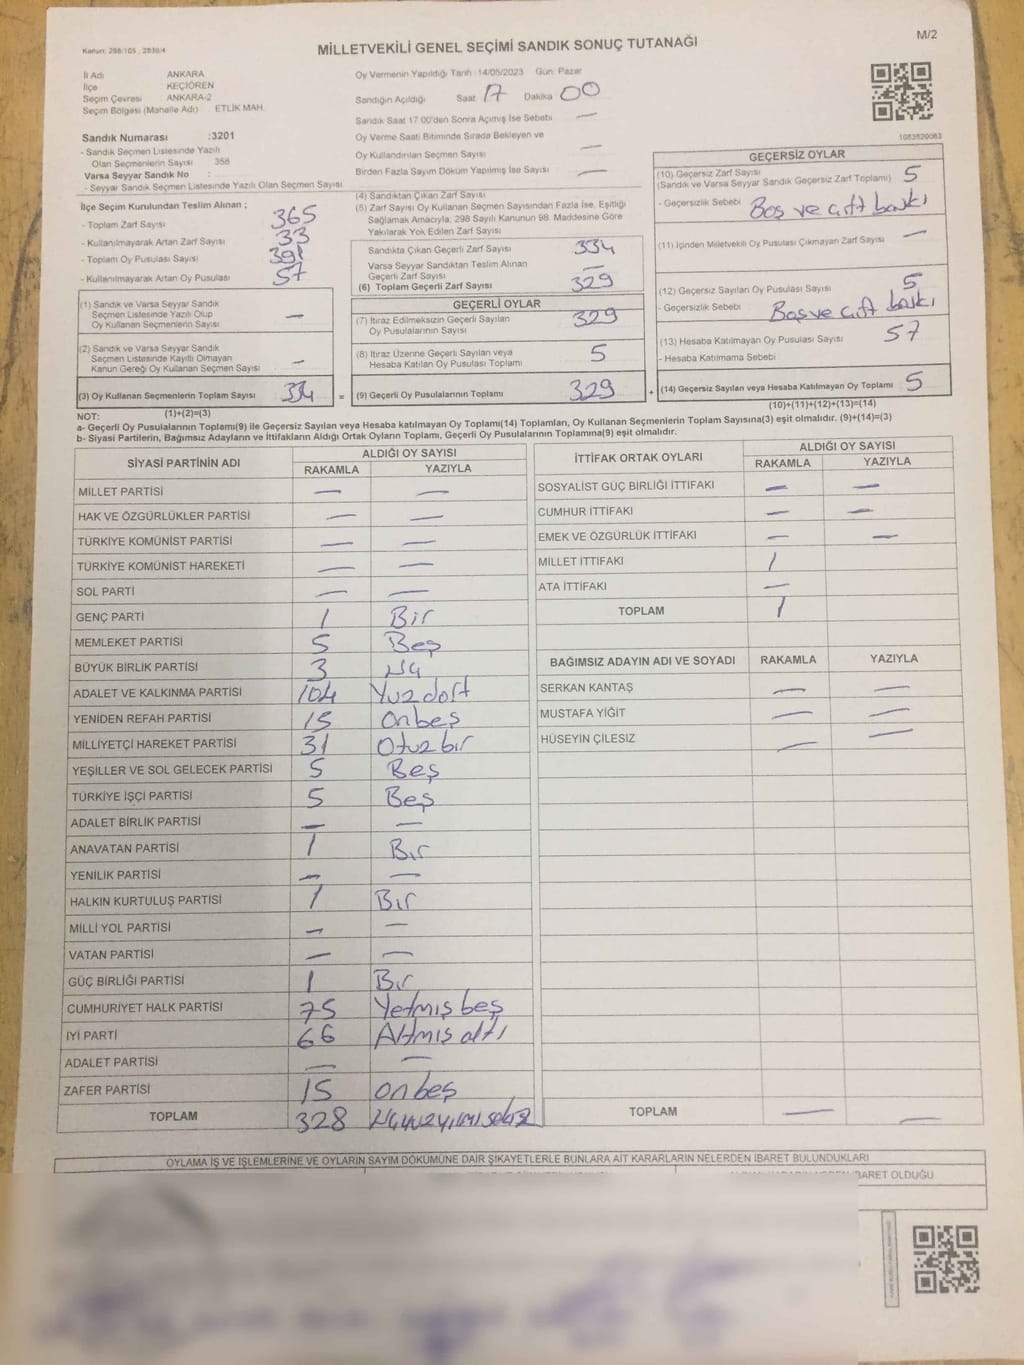 Kanun: 298/105 , 2839/4
M/2
MİLLETVEKİLİ GENEL SEÇİMİ SANDIK SONUÇ TUTANAĞI
İl Adı ANKARA
İlçe KEÇİÖREN
Seçim Çevresi ANKARA-2
Seçim Bölgesi (Mahalle Adı) ETLİK MAH.
Sandık Numarası :3201
- Sandık Seçmen Listesinde Yazılı
Olan Seçmenlerin Sayısı 358
Varsa Seyyar Sandık No :
- Seyyar Sandık Seçmen Listesinde Yazılı Olan Seçmen Sayısı
Oy Vermenin Yapıldığı Tarih :14/05/2023 Gün: Pazar
Sandığın Açıldığı Saat 17 Dakika 00
Sandık Saat 17:00'den Sonra Açılmış İse Sebebi —
Oy Verme Saati Bitiminde Sırada Bekleyen ve
Oy Kullandırılan Seçmen Sayısı —
Birden Fazla Sayım Döküm Yapılmış İse Sayısı —
1083820063
İlçe Seçim Kurulundan Teslim Alınan ;
- Toplam Zarf Sayısı 365
- Kullanılmayarak Artan Zarf Sayısı 33
- Toplam Oy Pusulası Sayısı
- Kullanılmayarak Artan Oy Pusulası 57
(1) Sandık ve Varsa Seyyar Sandık
Seçmen Listesinde Yazılı Olup
Oy Kullanan Seçmenlerin Sayısı —
(2) Sandık ve Varsa Seyyar Sandık
Seçmen Listesinde Kayıtlı Olmayan
Kanun Gereği Oy Kullanan Seçmen Sayısı —
(3) Oy Kullanan Seçmenlerin Toplam Sayısı 334 =
(1)+(2)=(3)
(4) Sandıktan Çıkan Zarf Sayısı
(5) Zarf Sayısı Oy Kullanan Seçmen Sayısından Fazla İse, Eşitliği
Sağlamak Amacıyla, 298 Sayılı Kanunun 98. Maddesine Göre
Yakılarak Yok Edilen Zarf Sayısı
Sandıkta Çıkan Geçerli Zarf Sayısı 334
Varsa Seyyar Sandıktan Teslim Alınan
Geçerli Zarf Sayısı —
(6) Toplam Geçerli Zarf Sayısı 329
GEÇERLİ OYLAR
(7) İtiraz Edilmeksizin Geçerli Sayılan
Oy Pusulalarının Sayısı 329
(8) İtiraz Üzerine Geçerli Sayılan veya
Hesaba Katılan Oy Pusulası Toplamı 5
(9) Geçerli Oy Pusulalarının Toplamı 329 +
GEÇERSİZ OYLAR
(10) Geçersiz Zarf Sayısı
(Sandık ve Varsa Seyyar Sandık Geçersiz Zarf Toplamı) 5
- Geçersizlik Sebebi Boş ve çift baskı
(11) İçinden Milletvekili Oy Pusulası Çıkmayan Zarf Sayısı —
(12) Geçersiz Sayılan Oy Pusulası Sayısı 5
- Geçersizlik Sebebi Boş ve çift baskı
(13) Hesaba Katılmayan Oy Pusulası Sayısı 57
- Hesaba Katılmama Sebebi
(14) Geçersiz Sayılan veya Hesaba Katılmayan Oy Toplamı 5
(10)+(11)+(12)+(13)=(14)
NOT:
a- Geçerli Oy Pusulalarının Toplamı(9) ile Geçersiz Sayılan veya Hesaba katılmayan Oy Toplamı(14) Toplamları, Oy Kullanan Seçmenlerin Toplam Sayısına(3) eşit olmalıdır. (9)+(14)=(3)
b- Siyasi Partilerin, Bağımsız Adayların ve İttifakların Aldığı Ortak Oyların Toplamı, Geçerli Oy Pusulalarının Toplamına(9) eşit olmalıdır.
SİYASİ PARTİNİN ADI ALDIĞI OY SAYISI
RAKAMLA YAZIYLA
MİLLET PARTİSİ — —
HAK VE ÖZGÜRLÜKLER PARTİSİ — —
TÜRKİYE KOMÜNİST PARTİSİ — —
TÜRKİYE KOMÜNİST HAREKETİ — —
SOL PARTİ — —
GENÇ PARTİ 1 Bir
MEMLEKET PARTİSİ 5 Beş
BÜYÜK BİRLİK PARTİSİ 3 Üç
ADALET VE KALKINMA PARTİSİ 104 Yüzdört
YENİDEN REFAH PARTİSİ 15 Onbeş
MİLLİYETÇİ HAREKET PARTİSİ 31 Otuzbir
YEŞİLLER VE SOL GELECEK PARTİSİ 5 Beş
TÜRKİYE İŞÇİ PARTİSİ 5 Beş
ADALET BİRLİK PARTİSİ — —
ANAVATAN PARTİSİ 1 Bir
YENİLİK PARTİSİ — —
HALKIN KURTULUŞ PARTİSİ 1 Bir
MİLLİ YOL PARTİSİ — —
VATAN PARTİSİ — —
GÜÇ BİRLİĞİ PARTİSİ 1 Bir
CUMHURİYET HALK PARTİSİ 75 Yetmiş beş
İYİ PARTİ 66 Altmış altı
ADALET PARTİSİ — —
ZAFER PARTİSİ 15 onbeş
TOPLAM 328 Üçyüzyirmisekiz
İTTİFAK ORTAK OYLARI ALDIĞI OY SAYISI
RAKAMLA YAZIYLA
SOSYALİST GÜÇ BİRLİĞİ İTTİFAKI — —
CUMHUR İTTİFAKI — —
EMEK VE ÖZGÜRLÜK İTTİFAKI — —
MİLLET İTTİFAKI 1
ATA İTTİFAKI —
TOPLAM 1
BAĞIMSIZ ADAYIN ADI VE SOYADI RAKAMLA YAZIYLA
SERKAN KANTAŞ — —
MUSTAFA YİĞİT — —
HÜSEYİN ÇİLESİZ — —
TOPLAM — —
OYLAMA İŞ VE İŞLEMLERİNE VE OYLARIN SAYIM DÖKÜMÜNE DAİR ŞİKAYETLERLE BUNLARA AİT KARARLARIN NELERDEN İBARET BULUNDUKLARI
İBARET OLDUĞU